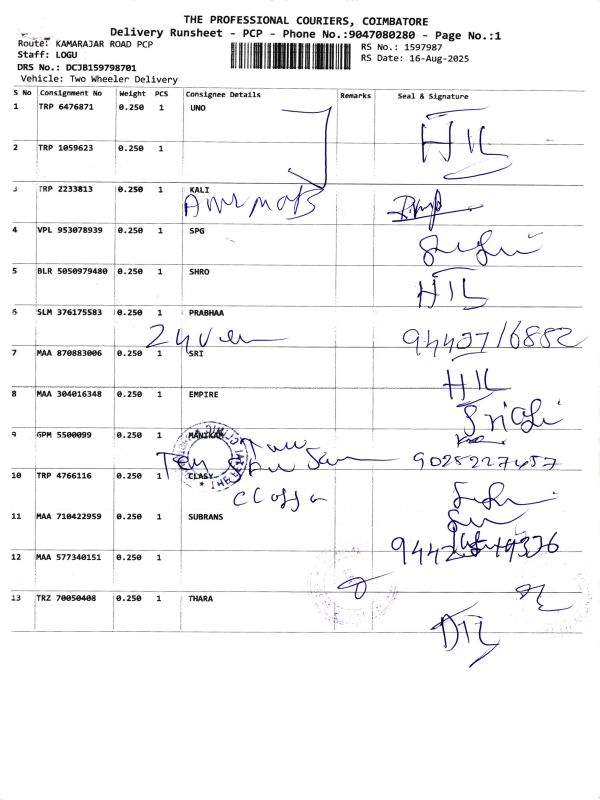 THE PROFESSIONAL COURIERS, COIMBATORE
Delivery Runsheet - PCP - Phone No.:9047080280 - Page No.:1
Route: KAMARAJAR ROAD PCP
RS No.: 1597987
Staff: LOGU
RS Date: 16-Aug-2025
DRS No.: DCJB159798701
Vehicle: Two Wheeler Delivery
S No Consignment No Weight PCS Consignee Details Remarks Seal & Signature
1 TRP 6476871 0.250 1 UNO
2 TRP 1059623 0.250 1
HIL
3 TRP 2233813 0.250 1 KALI
4 VPL 953078939 0.250 1 SPG
5 BLR 5050979480 0.250 1 SHRO
HIL
6 SLM 376175583 0.250 1 PRABHAA
9442716882
7 MAA 870883006 0.250 1 SRI
HIL
8 MAA 304016348 0.250 1 EMPIRE
9 GPM 5500099 0.250 1 MANIKAM
9025227457
10 TRP 4766116 0.250 1 CLASY
11 MAA 710422959 0.250 1 SUBRANS
12 MAA 577340151 0.250 1
13 TRZ 70050408 0.250 1 THARA